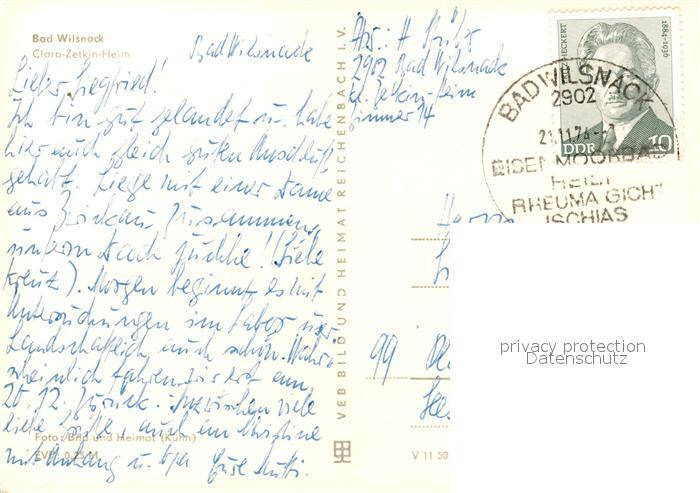 Bad Wilsnack
Clara-Zetkin-Heim
Bad Wilsnack
Lieber Siegfried!
Ich bin gut gelandet u. habe
hier auch gleich guten Anschluß
gehabt. Liege mit einer Dame
aus Zwickau zusammen,
unterm Dach juchhe! (Siehe
Kreuz). Morgen beginnt es mit
Untersuchungen im Labor usw.
Landschaftlich auch schön. Wahr-
scheinlich fahren wir erst am
20.12. zurück. Inzwischen viele
liebe Grüße, auch an Christine
mit Anhang u. Eure Mutti.
Foto: Bild und Heimat (Kühn)
EVP: 0,25 M
VEB BILD UND HEIMAT REICHENBACH I. V.
V 11 50
Abs.: H.
2902 Bad Wilsnack
Cl. Zetkin-Heim
Zimmer 14
HECKERT
1884-1936
DDR 10
BAD WILSNACK
2902
21.11.74
EISENMOORBAD
HEILT
RHEUMA GICHT
ISCHIAS
Herrn
99
privacy protection
Datenschutz